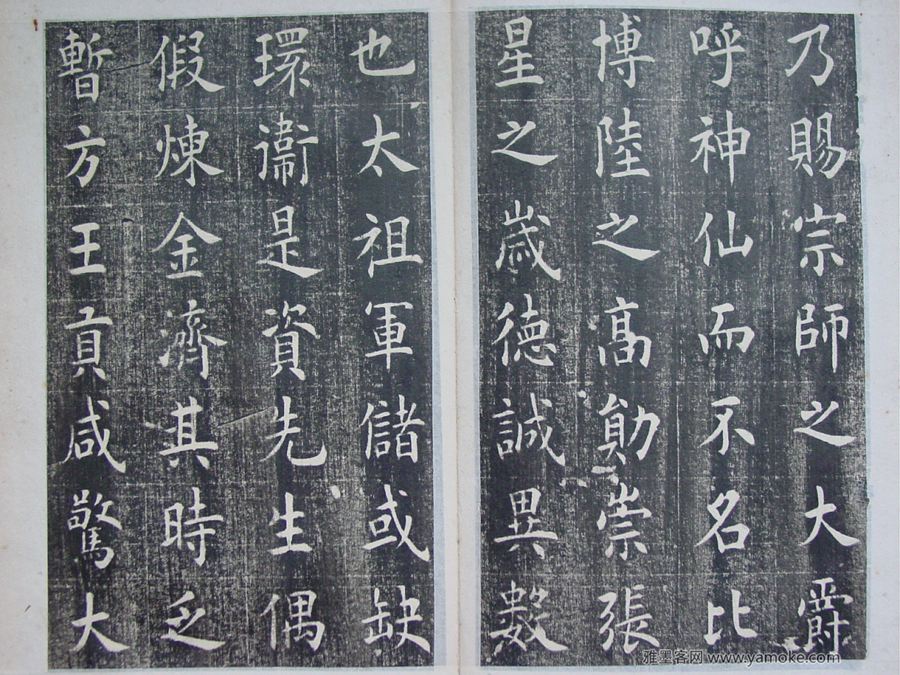 乃賜宗師之大爵
呼神仙而不名比
博陸之高勛崇張
星之歲德誠異數
也太祖軍儲或缺
環衞是資先生偶
假煉金濟其時乏
暫方王貢咸驚大
雅墨客网 www.yamoke.com